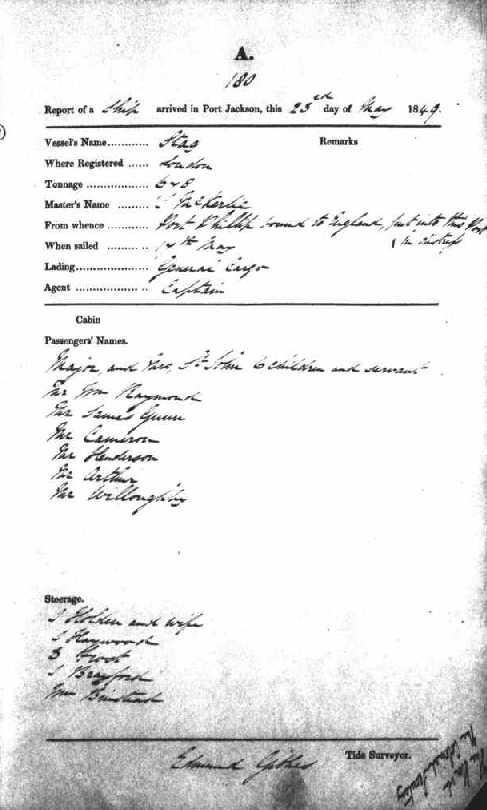 A.
180
Report of a Ship arrived in Port Jackson, this 23rd day of May 1849.
Vessel's Name............ Stag Remarks
Where Registered ...... London
Tonnage .................. 648
Master's Name ......... McKerlie
From whence ......... Port Phillip bound to England, put into this Port
When sailed .......... 14th May in distress
Lading..................... General Cargo
Agent ..................... Captain
Cabin
Passengers' Names.
Major and Mrs. St John 6 children and servant
Mr Wm Raymond
Mr James Gunn
Mr Cameron
Mr Henderson
Mr Arthur
Mr Willoughby
Steerage.
Holden and Wife
Haywood
Frost
Brayford
Wm
Edmund Gibbes Tide Surveyor.